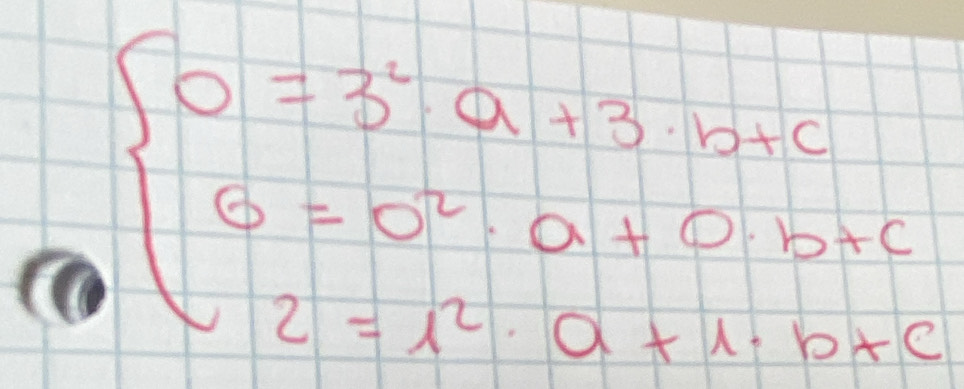 0 = 3² · a + 3 · b + c
6 = 0² · a + 0 · b + c
2 = 1² · a + 1 · b + c